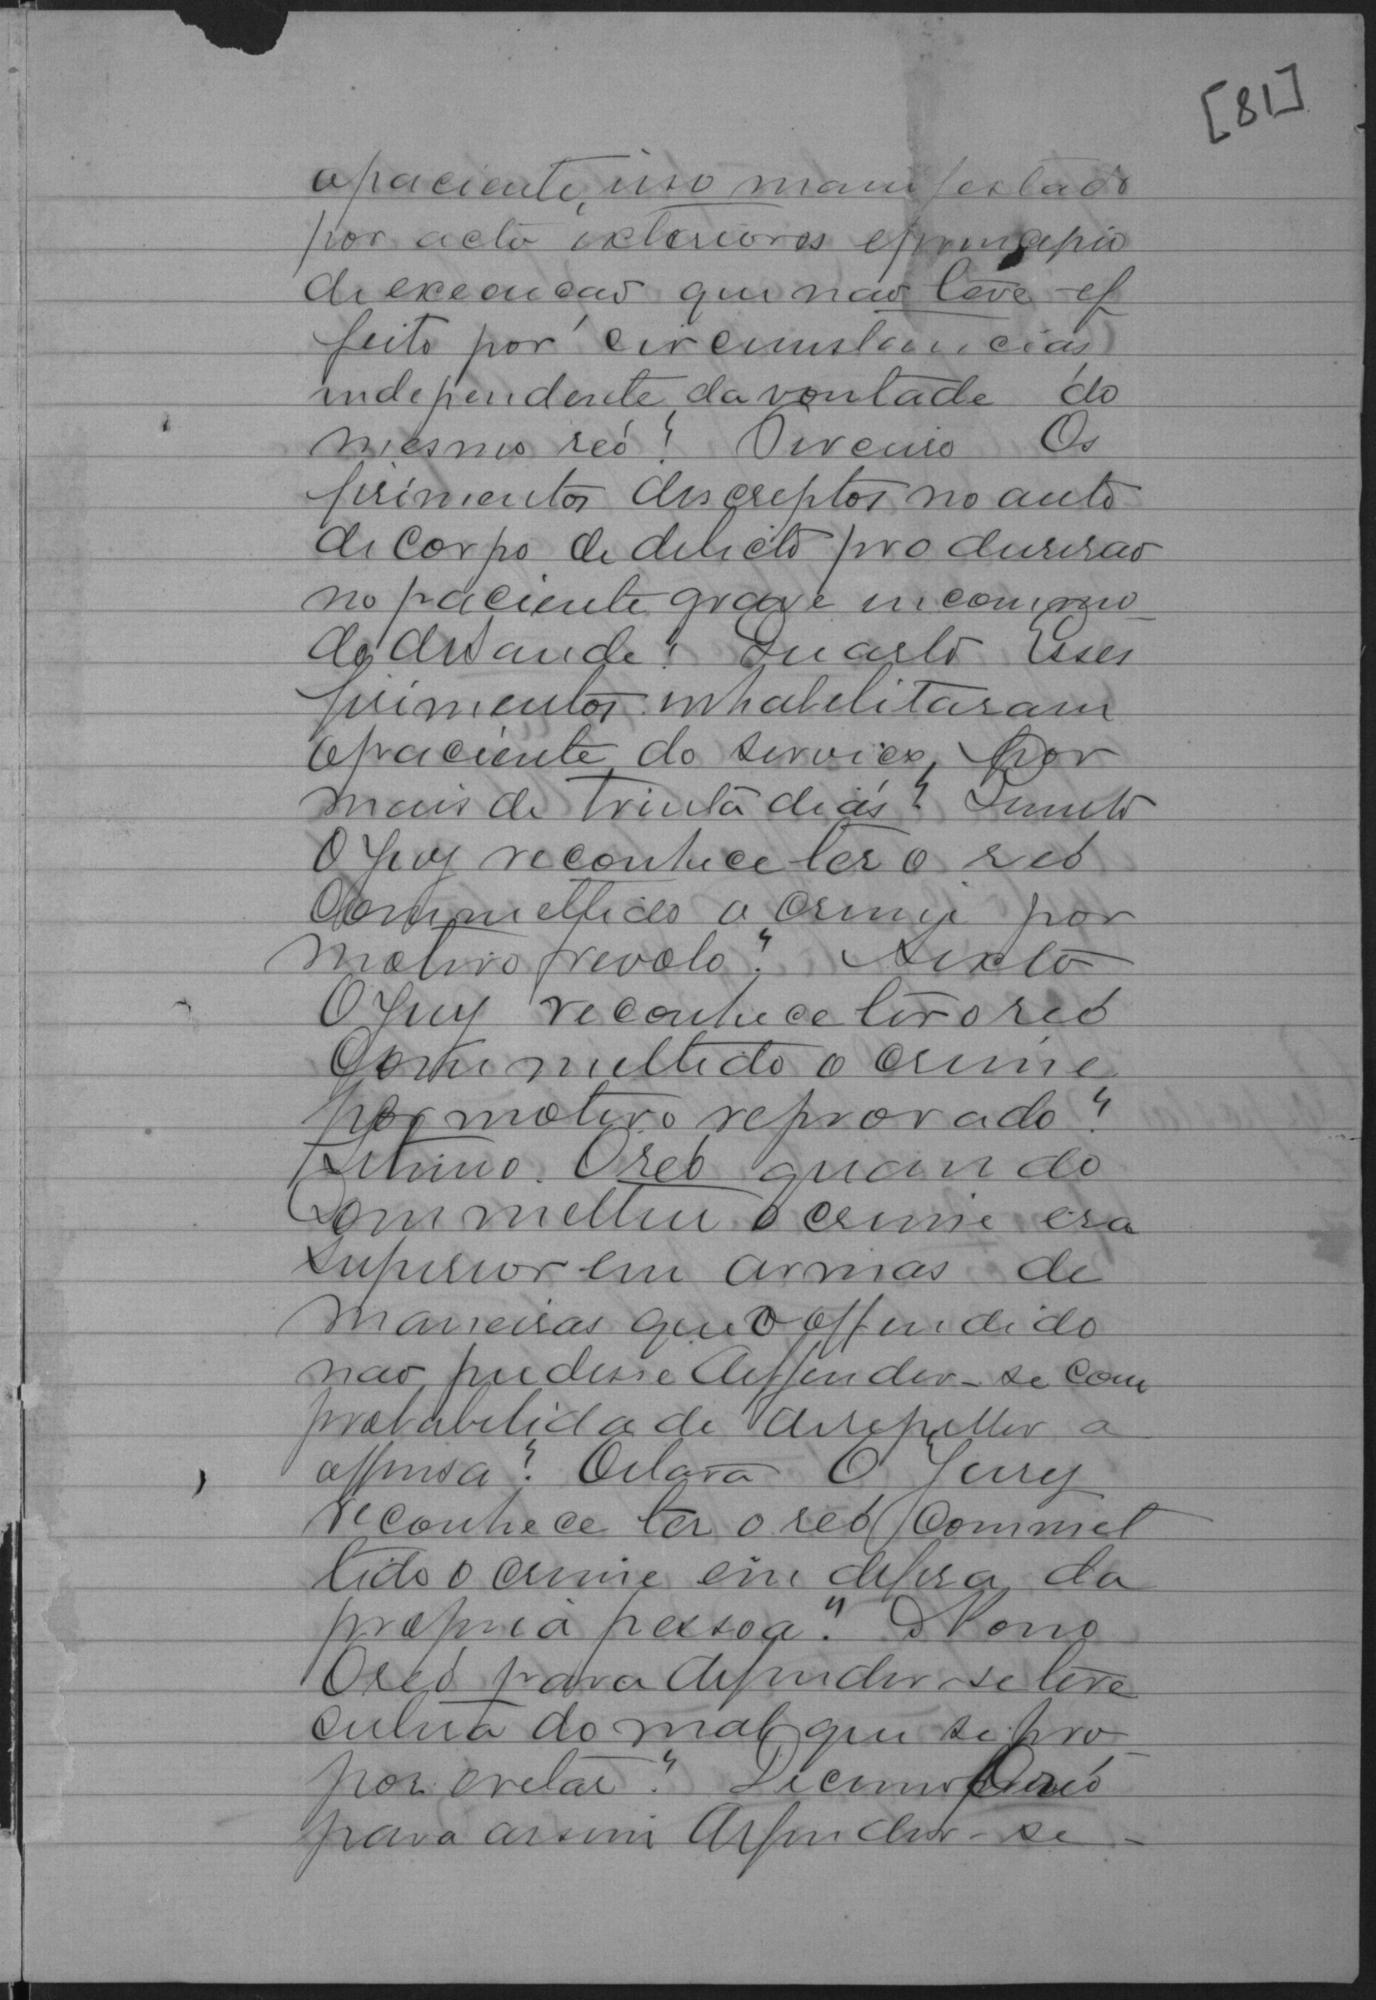 [81]
o paciente, isso manifestado
por acto exteriores e principio
de execucao que nao teve ef
feito por circumstancias
independente da vontade do
mesmo reó? Terceiro Os
firimentos discreptos no auto
de corpo de delicto produsirao
no paciente grave incommo
do de Saude? Quarto Esses
firimentos inhabelitaram
o paciente do servico, por
mais de trinta dias? Quinto
O Jury reconhece ter o reó
Commettido o crime por
motivo frevolo? Sexto
O Jury reconhece ter o reó
Commettido o crime
por motivo reprovado?
Setimo. O reó quando
Commetteu o crime era
superior em armas de
maneiras que o offendido
nao pudesse deffender-se com
probabelidade de repeller a
offensa? Oitava O Jury
reconhece ter o reó Commet
tido o crime em defesa da
propria pessoa? Nono
O reó para defender-se teve
certesa do mal que se pro
pos evitar? Decimo O reó
para assim defender-se-